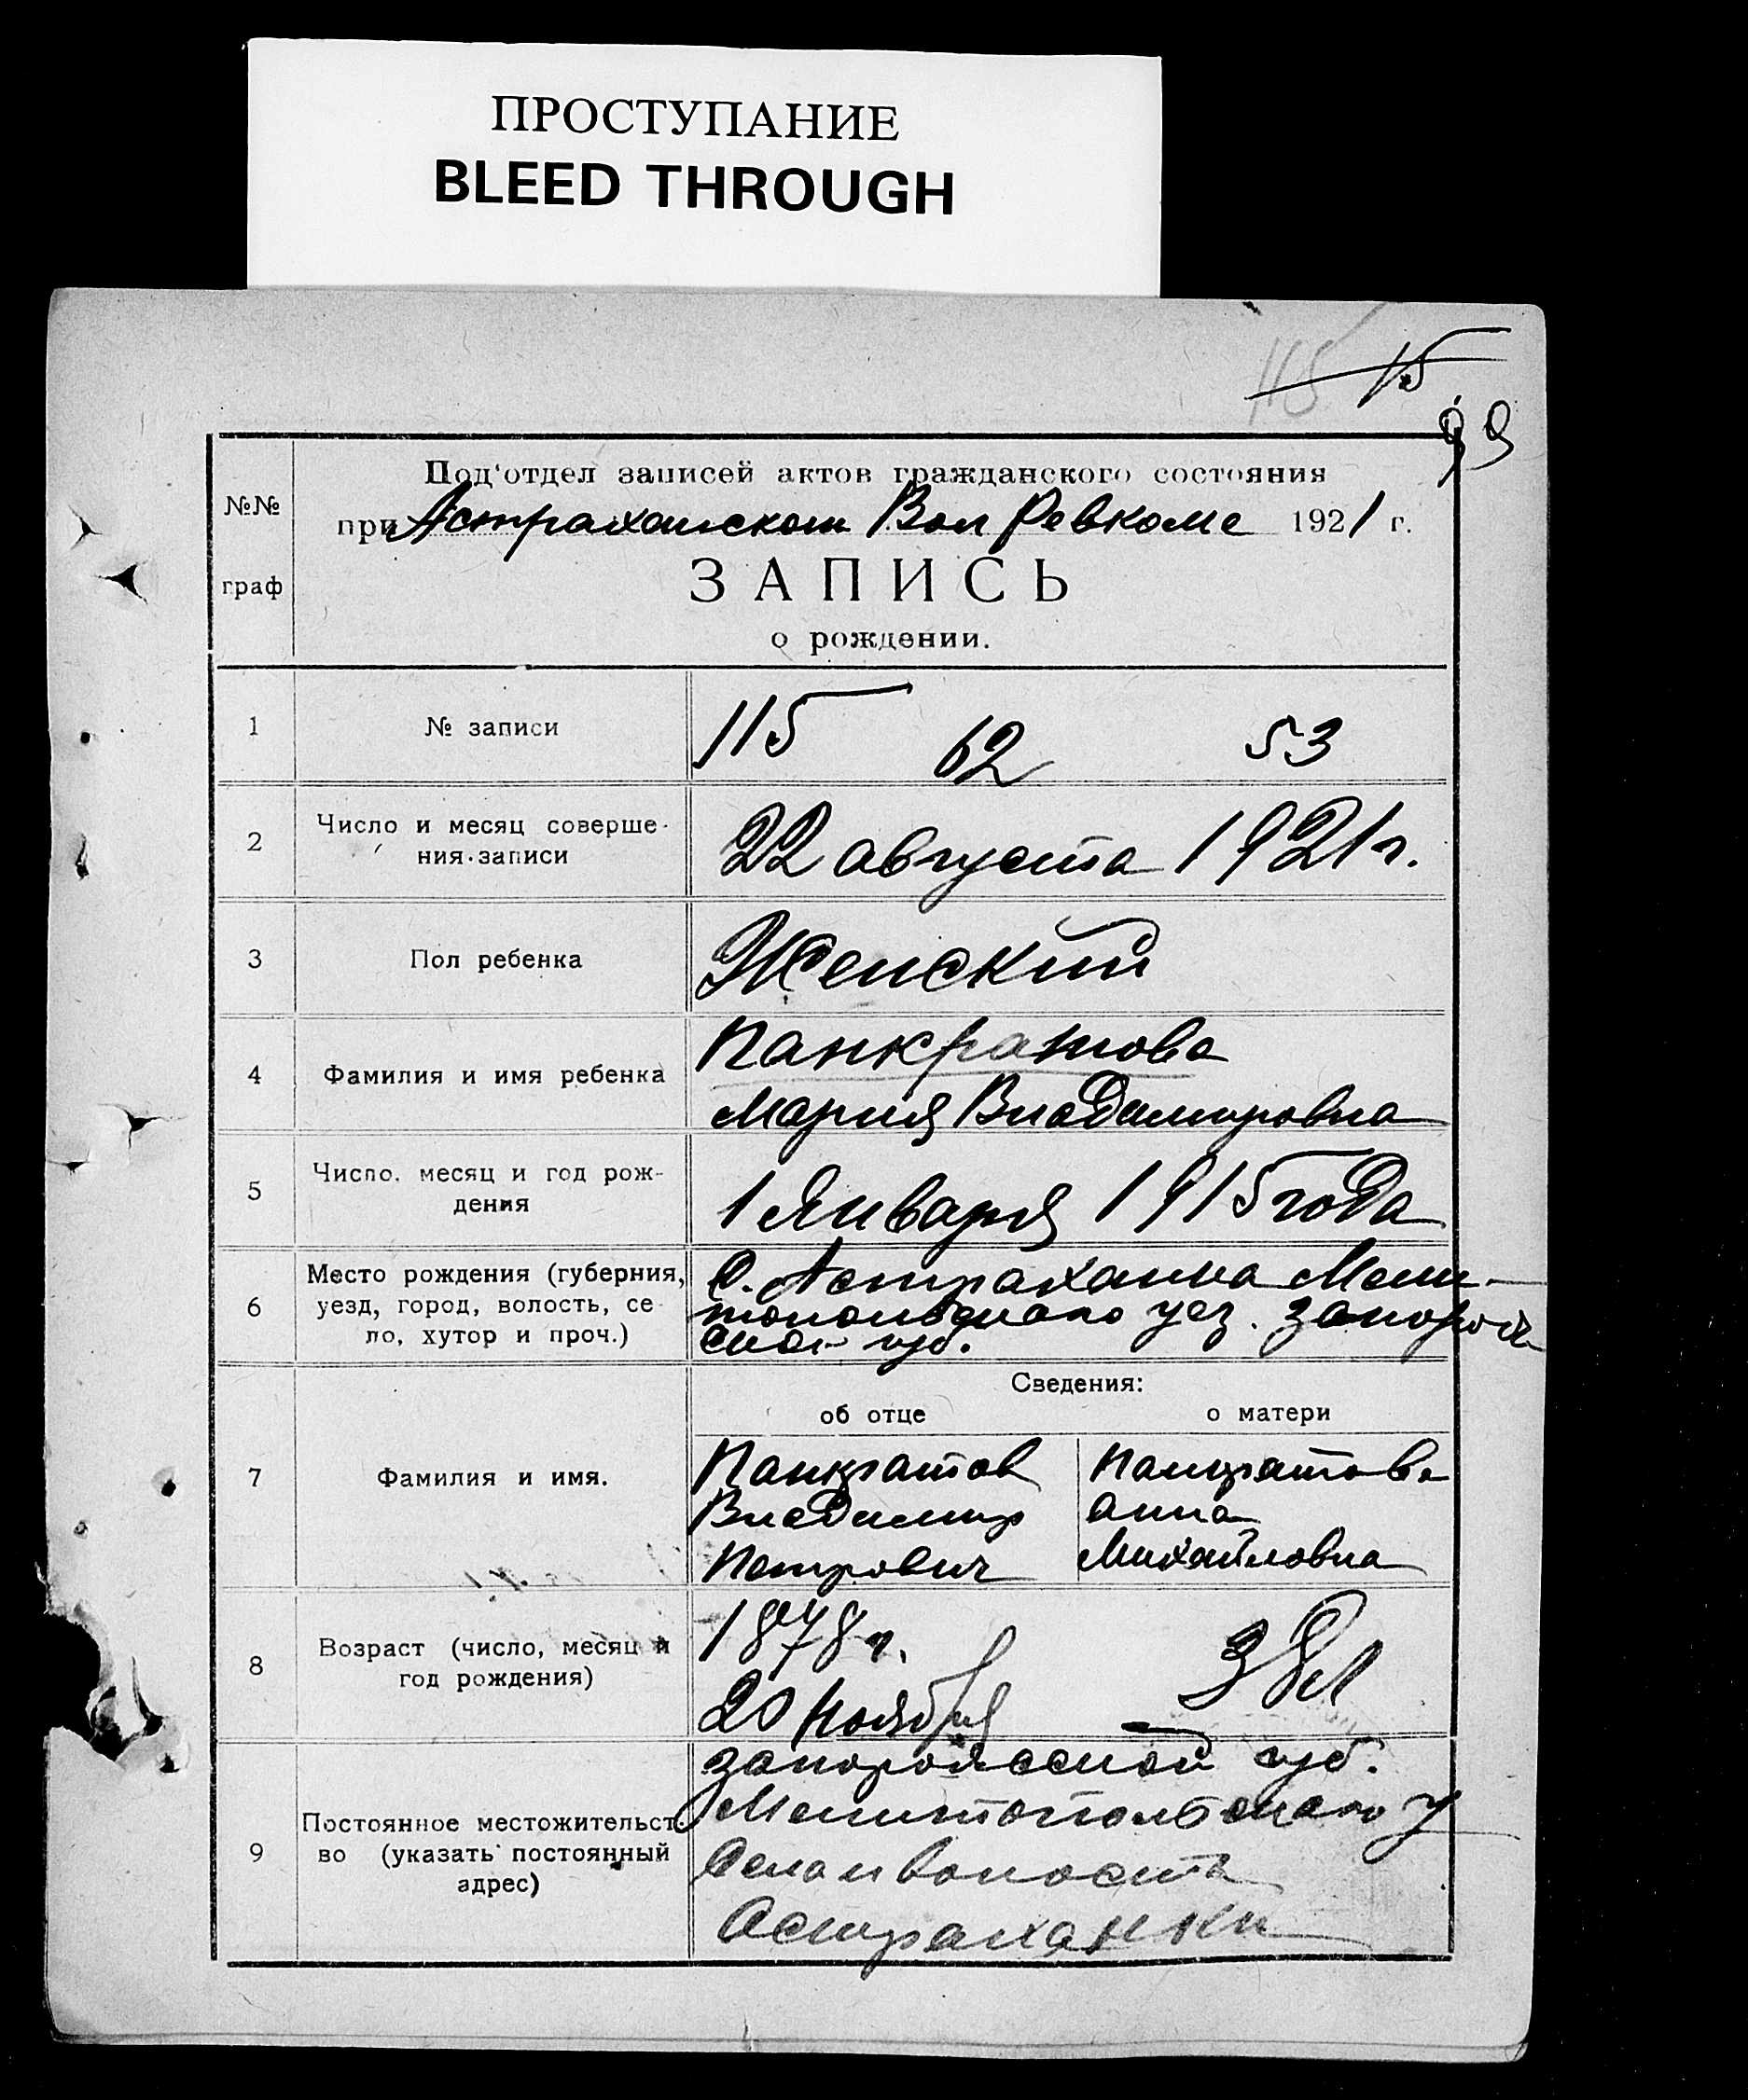 ПРОСТУПАНИЕ
BLEED THROUGH
115 15
99
№№
граф
Под'отдел записей актов гражданского состояния
при Астраханском Вол Ревкоме 1921 г.
ЗАПИСЬ
о рождении.
1 № записи 115 62 53
2 Число и месяц соверше-
ния записи 22 августа 1921 г.
3 Пол ребенка Женский
4 Фамилия и имя ребенка Панкратова
Мария Владимировна
5 Число, месяц и год рож-
дения 1 Января 1915 года
6 Место рождения (губерния,
уезд, город, волость, се-
ло, хутор и проч.)
С. Астраханка Мели-
топольскаго уез. Запорож
ской губ.
Сведения:
об отце о матери
7 Фамилия и имя.
Панкратов
Владимир
Петрович
Панкратова
Анна
Михайловна
8 Возраст (число, месяц и
год рождения)
1878 г.
20 Ноября
38 л
9 Постоянное местожительст-
во (указать постоянный
адрес)
Запорожской губ.
Мелитопольскаго у
Села и волости
Астраханки